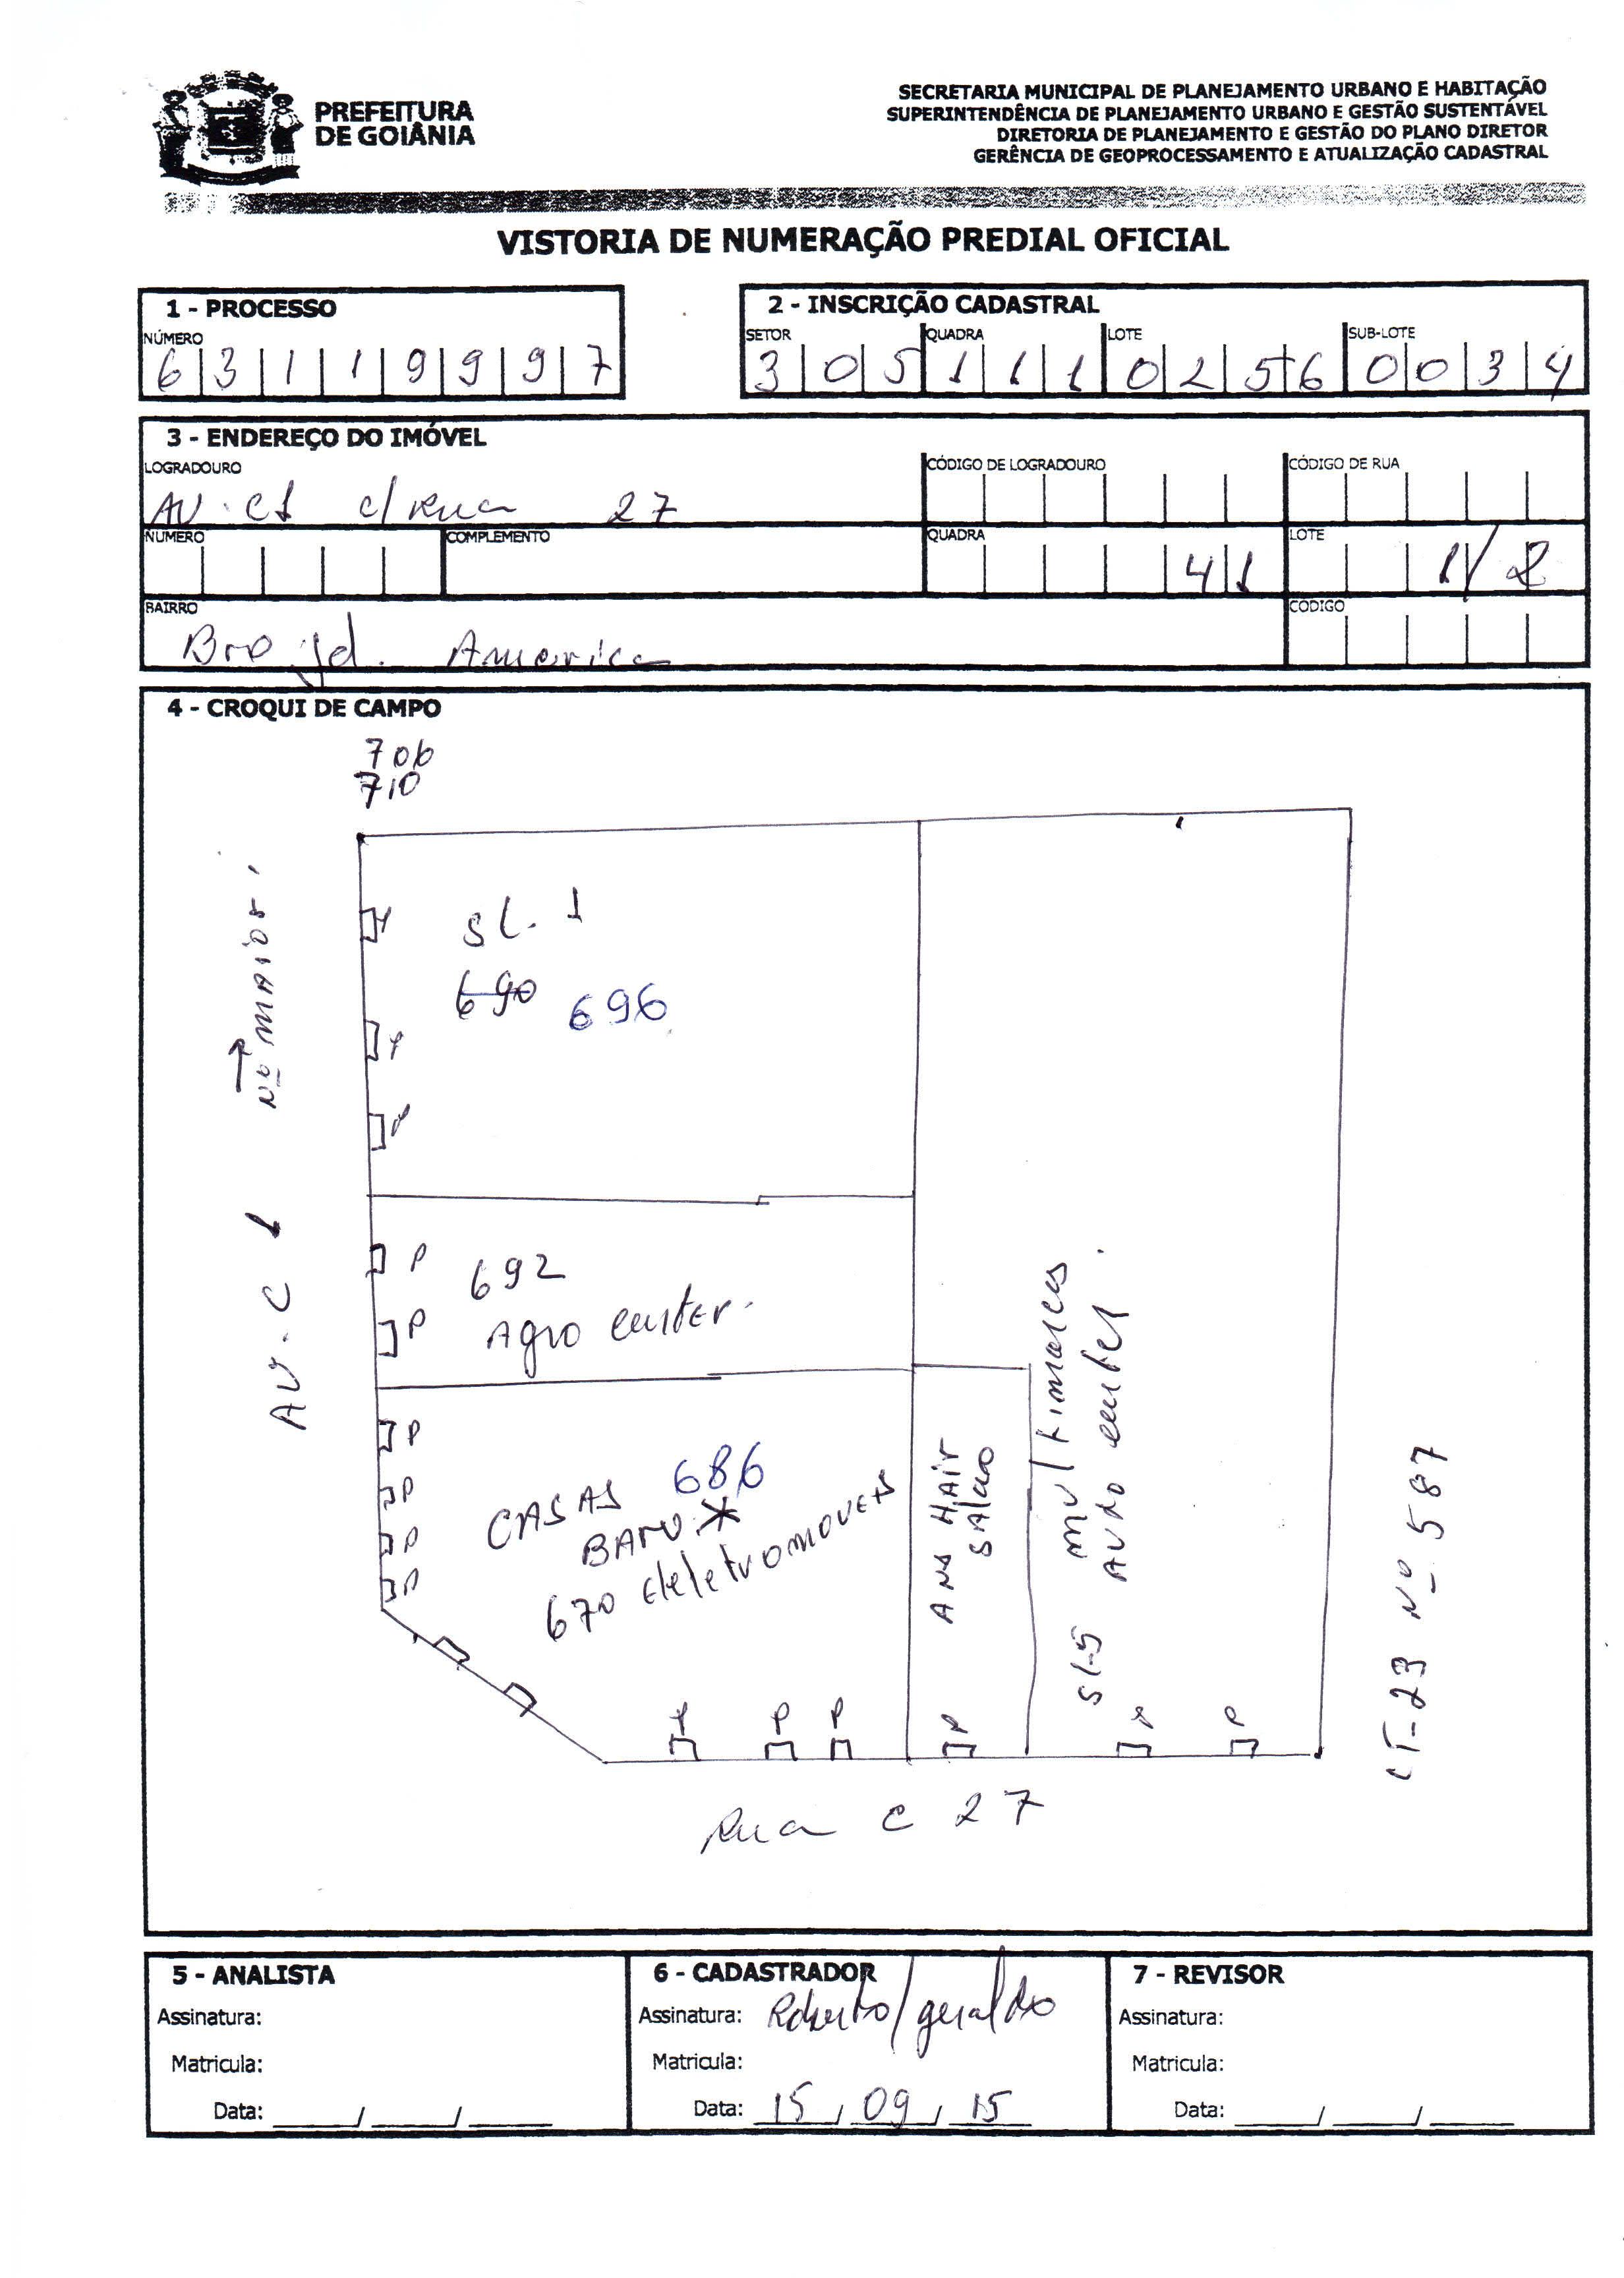 PREFEITURA
DE GOIÂNIA
SECRETARIA MUNICIPAL DE PLANEJAMENTO URBANO E HABITAÇÃO
SUPERINTENDÊNCIA DE PLANEJAMENTO URBANO E GESTÃO SUSTENTÁVEL
DIRETORIA DE PLANEJAMENTO E GESTÃO DO PLANO DIRETOR
GERÊNCIA DE GEOPROCESSAMENTO E ATUALIZAÇÃO CADASTRAL
VISTORIA DE NUMERAÇÃO PREDIAL OFICIAL
1 - PROCESSO
NÚMERO
6 3 1 1 9 9 9 7
2 - INSCRIÇÃO CADASTRAL
SETOR QUADRA LOTE SUB-LOTE
3 0 5 1 1 1 0 2 5 6 0 0 3 4
3 - ENDEREÇO DO IMÓVEL
LOGRADOURO CÓDIGO DE LOGRADOURO CÓDIGO DE RUA
AV. C1 c/ Rua 27
NÚMERO COMPLEMENTO QUADRA LOTE
41 1/2
BAIRRO CÓDIGO
Bro Jd. America
4 - CROQUI DE CAMPO
706
710
Nº MAIOR
AV. C 1
SL. 1
690 696
P
P
P
P 692
P Agro center.
P
P
P
P
CASAS 686
BAHU *
670 eletromoveis
ANA HAIR
SALAO
SL-5 multimarcas
AUTO center
P P P P P P
LT-23 Nº 587
Rua C 27
5 - ANALISTA
Assinatura:
Matricula:
Data: ____/____/____
6 - CADASTRADOR
Assinatura: Roberto/geraldo
Matricula:
Data: 15/09/15
7 - REVISOR
Assinatura:
Matricula:
Data: ____/____/____